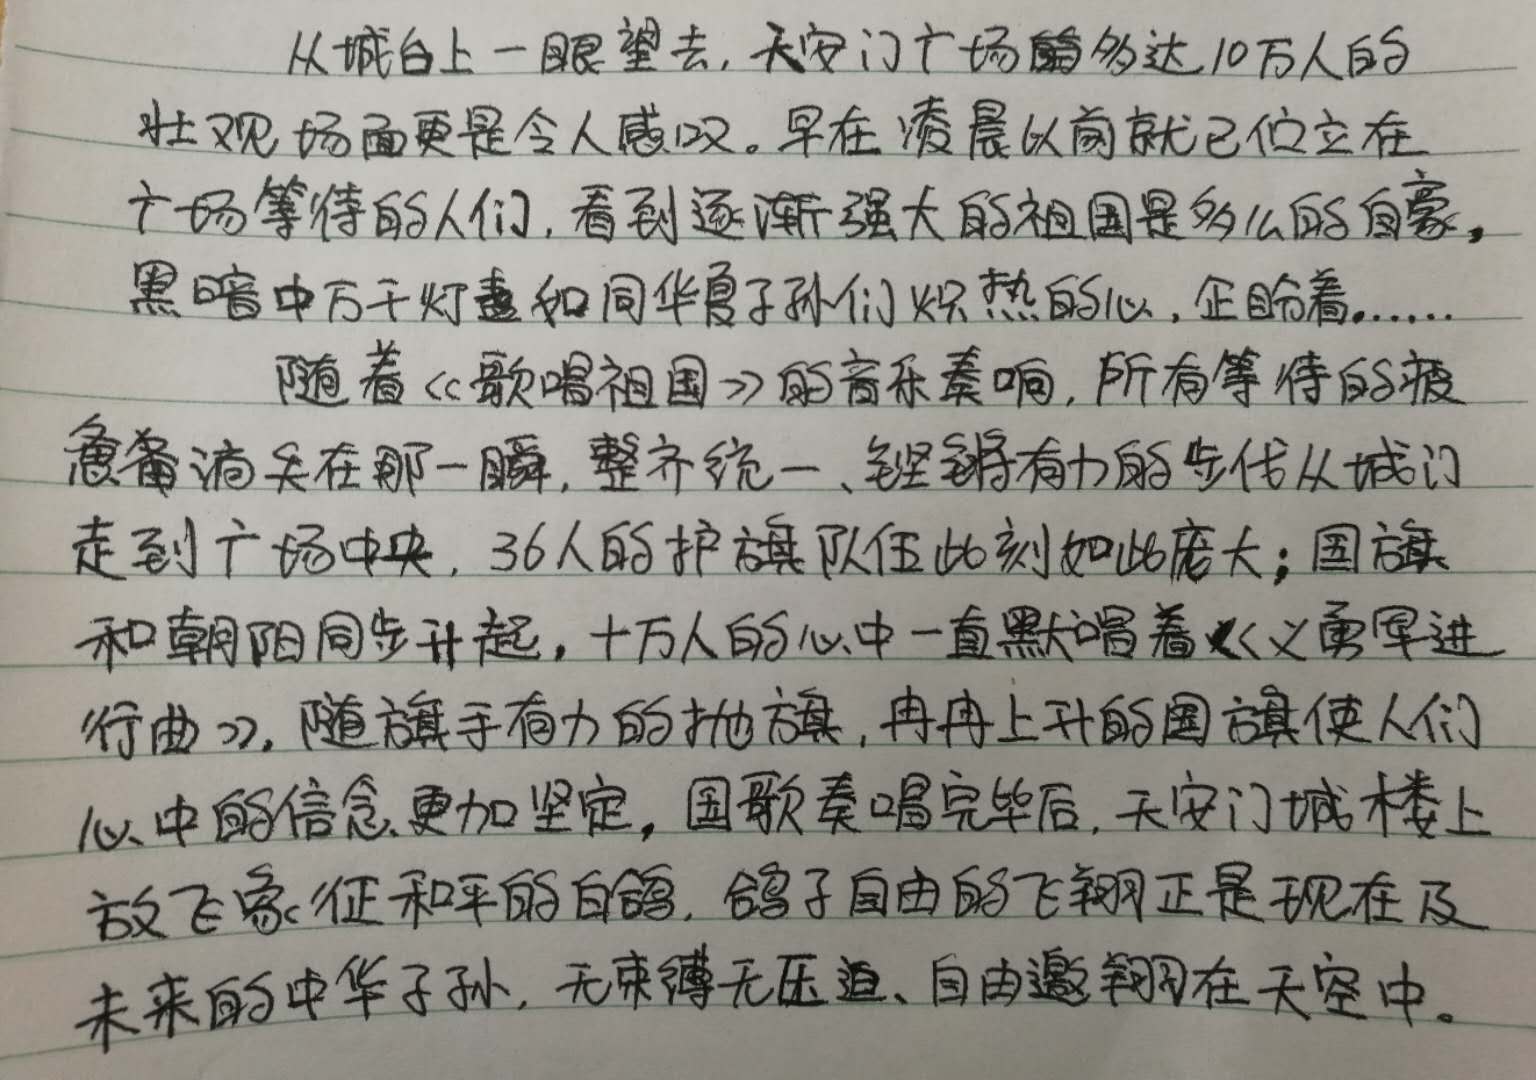 从城台上一眼望去，天安门广场多达10万人的
壮观场面更是令人感叹。早在凌晨以前就已伫立在
广场等待的人们，看到逐渐强大的祖国是多么的自豪，
黑暗中万千灯盏如同华夏子孙们炽热的心，企盼着……
随着《歌唱祖国》的音乐奏响，所有等待的疲
惫消失在那一瞬，整齐统一、铿锵有力的步伐从城门
走到广场中央，36人的护旗队伍此刻如此庞大；国旗
和朝阳同步升起，十万人的心中一直默唱着《义勇军进
行曲》，随旗手有力的抛旗，冉冉上升的国旗使人们
心中的信念更加坚定，国歌奏唱完毕后，天安门城楼上
放飞象征和平的白鸽，鸽子自由的飞翔正是现在及
未来的中华子孙，无束缚无压迫、自由遨翔在天空中。